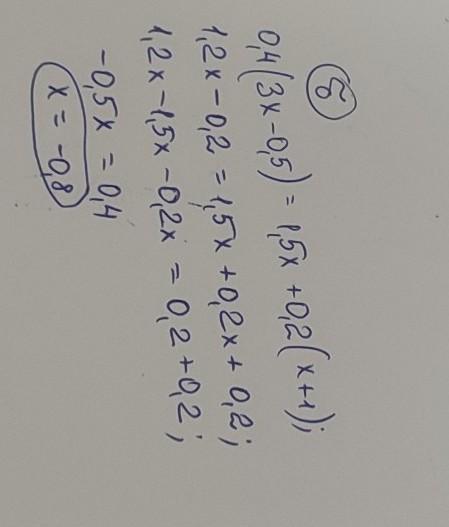 б
0,4(3x-0,5) = 1,5x +0,2(x+1);
1,2x-0,2 = 1,5x +0,2x + 0,2;
1,2x-1,5x -0,2x = 0,2 +0,2;
-0,5x = 0,4
x = -0,8